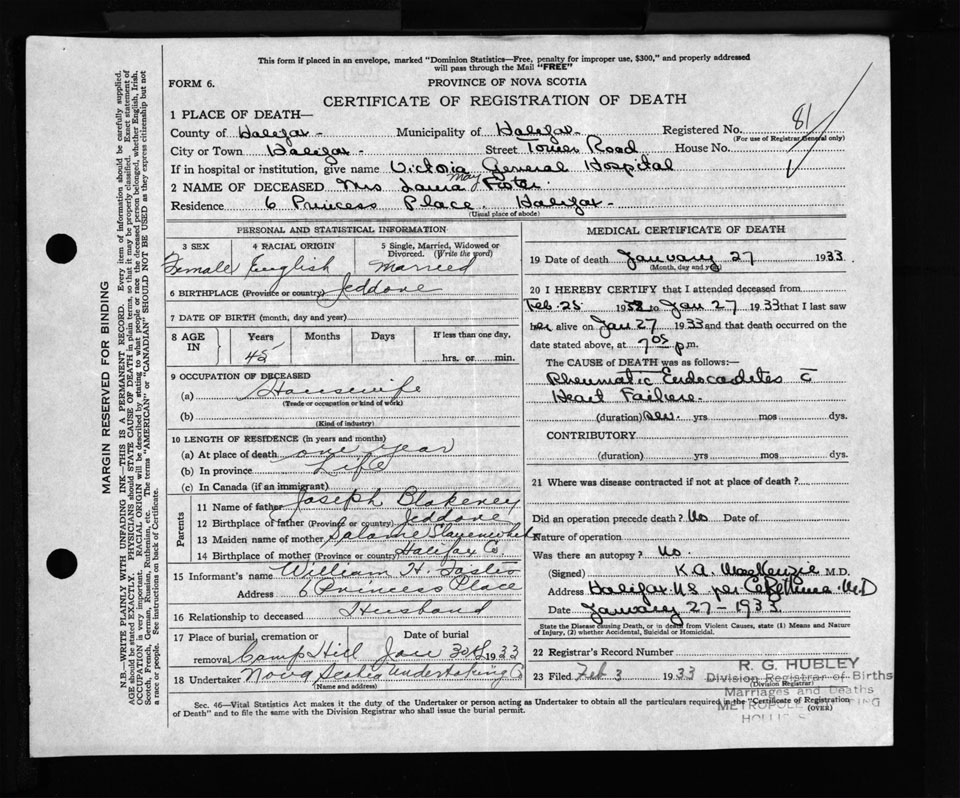 This form if placed in an envelope, marked "Dominion Statistics—Free, penalty for improper use, $300," and properly addressed
will pass through the Mail "FREE"
FORM 6. PROVINCE OF NOVA SCOTIA
CERTIFICATE OF REGISTRATION OF DEATH
1 PLACE OF DEATH—
County of Halifax Municipality of Halifax Registered No. 81
(For use of Registrar General only)
City or Town Halifax Street Tower Road House No.
If in hospital or institution, give name Victoria General Hospital
May
2 NAME OF DECEASED Mrs Laura Foster
Residence 6 Princess Place. Halifax
(Usual place of abode)
PERSONAL AND STATISTICAL INFORMATION
3 SEX 4 RACIAL ORIGIN 5 Single, Married, Widowed or
Divorced. (Write the word)
Female English Married
6 BIRTHPLACE (Province or country) Jeddore
7 DATE OF BIRTH (month, day and year)
8 AGE IN Years Months Days If less than one day,
45 hrs. or min.
9 OCCUPATION OF DECEASED
(a) Housewife
(Trade or occupation or kind of work)
(b)
(Kind of industry)
10 LENGTH OF RESIDENCE (in years and months)
(a) At place of death one year
(b) In province Life
(c) In Canada (if an immigrant)
Parents
11 Name of father Joseph Blakeney
12 Birthplace of father (Province or country) Jeddore
13 Maiden name of mother Salome
14 Birthplace of mother (Province or country) Halifax Co.
15 Informant's name William H. Foster
Address 6 Princess Place
16 Relationship to deceased Husband
17 Place of burial, cremation or Date of burial
removal Camp Hill Jan 30th 1933
18 Undertaker Nova Scotia Undertaking Co
(Name and address)
MEDICAL CERTIFICATE OF DEATH
19 Date of death January 27 1933
(Month, day and year)
20 I HEREBY CERTIFY that I attended deceased from
Feb. 25 1932 to Jan 27 1933 that I last saw
her alive on Jan 27 1933 and that death occurred on the
date stated above, at 7 05 p m.
The CAUSE of DEATH was as follows:
Rheumatic Endocardites c̄
Heart Failure.
(duration) yrs mos dys.
CONTRIBUTORY
(duration) yrs mos dys.
21 Where was disease contracted if not at place of death?
Did an operation precede death? No Date of
Nature of operation
Was there an autopsy? No.
(Signed) K.A. MacKenzie M.D.
Address Halifax N.S. per M.D
Date January 27-1933
State the Disease causing Death, or in death from Violent Causes, state (1) Means and Nature
of Injury, (2) whether Accidental, Suicidal or Homicidal.
22 Registrar's Record Number
23 Filed Feb 3 1933
(Division Registrar)
R. G. HUBLEY
Division Registrar of Births
Marriages and Deaths
Sec. 46—Vital Statistics Act makes it the duty of the Undertaker or person acting as Undertaker to obtain all the particulars required in the "Certificate of Registration
of Death" and to file the same with the Division Registrar who shall issue the burial permit. (OVER)
MARGIN RESERVED FOR BINDING
N.B.—WRITE PLAINLY WITH UNFADING INK—THIS IS A PERMANENT RECORD. Every item of information should be carefully supplied.
AGE should be stated EXACTLY. PHYSICIANS should STATE CAUSE OF DEATH in plain terms, so that it may be properly classified. Exact statement of
OCCUPATION is very important. RACIAL ORIGIN will be described by stating to what people or race the deceased person belonged, whether English, Irish,
Scotch, French, German, Russian, Ruthenian, etc. The terms "AMERICAN" or "CANADIAN" SHOULD NOT BE USED as they express citizenship but not
a race or people. See instructions on back of Certificate.